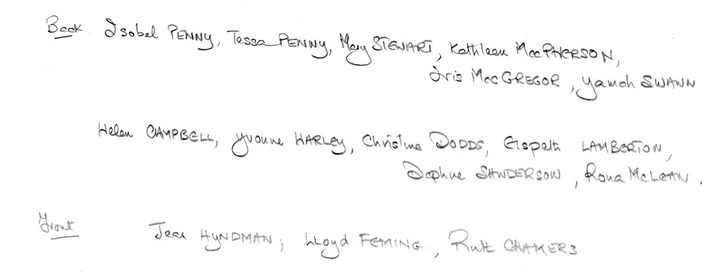 Back Isobel PENNY, Tessa PENNY, Mary STEWART, Kathleen MacPHERSON,
Iris MacGREGOR, SWANN
Helen CAMPBELL, Yvonne HARLEY, Christine DODDS, Elspeth LAMBERTON,
Daphne SANDERSON, Rona McLEAN.
Front Jean HYNDMAN, Lloyd FEMING, Ruth CHAMERS